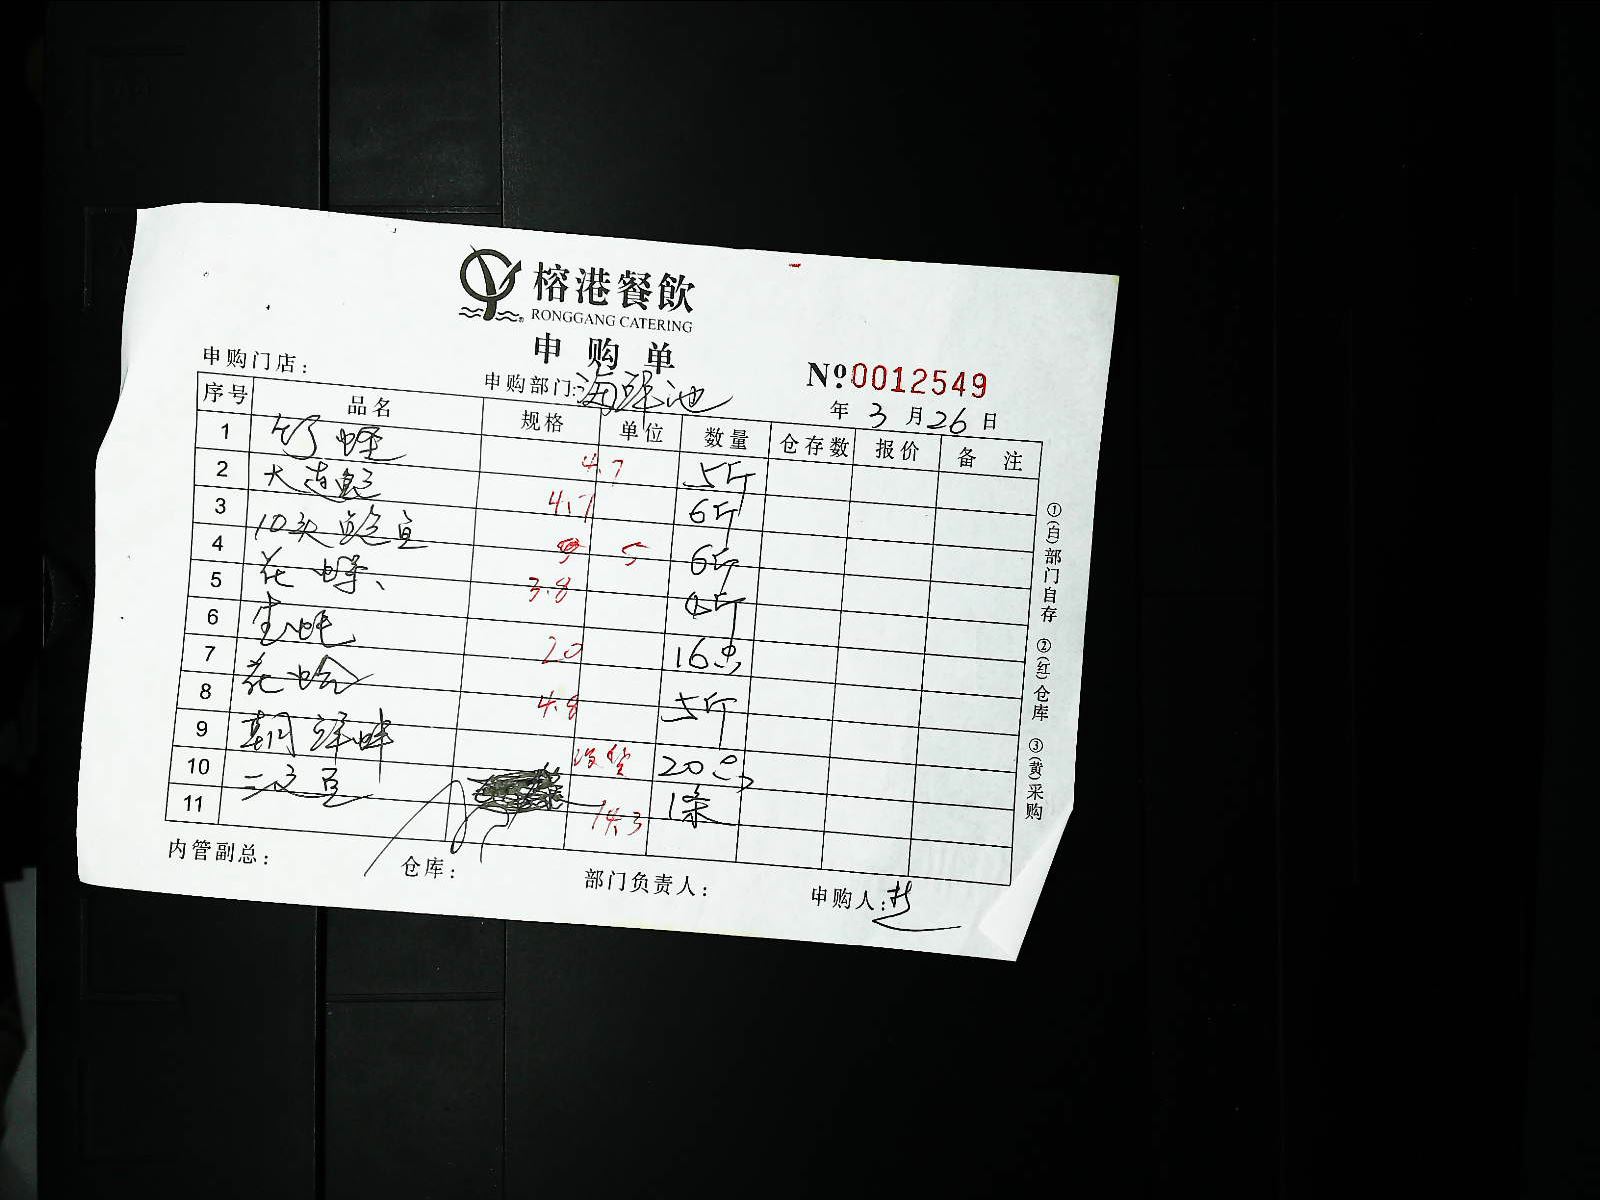 榕港餐飲
RONGGANG CATERING
申购单
申购门店:
申购部门:海鲜池
Nº0012549
年 3 月 26 日
序号 品名 规格 单位 数量 仓存数 报价 备 注
1 竹蛏 4.7 5斤
2 大连鲍 4.7 6斤
3 10头鲍鱼 5 6斤
4 花螺 3.8 4斤
5 生蚝 20 16只
6 花蛤 4.8 5斤
7
8 朝鲜蚌 没货 20只
9
10 14.3 1条
11
内管副总: 仓库: 部门负责人: 申购人:
①(白)部门自存 ②(红)仓库 ③(黄)采购